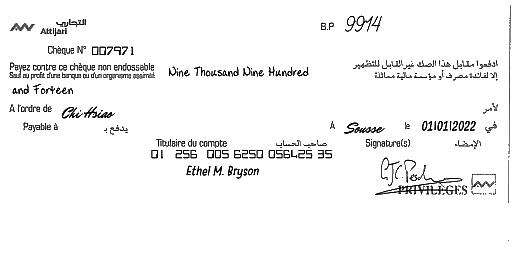 التجاري
Attijari
B.P 9914
Chèque N° 007971
Payez contre ce chèque non endossable
Sauf au profit d'une banque ou d'un organisme assimilé
Nine Thousand Nine Hundred
ادفعوا مقابل هذا الصك غير القابل للتظهير
إلا لفائدة مصرف أو مؤسسة مالية مماثلة
and Forteen
A l'ordre de Chi Hsiao لأمر
Payable à يدفع بـ A Sousse le 01/01/2022 في
Titulaire du compte صاحب الحساب Signature(s) الإمضاء
01 256 005 6250 056425 35
Ethel M. Bryson
PRIVILÈGES